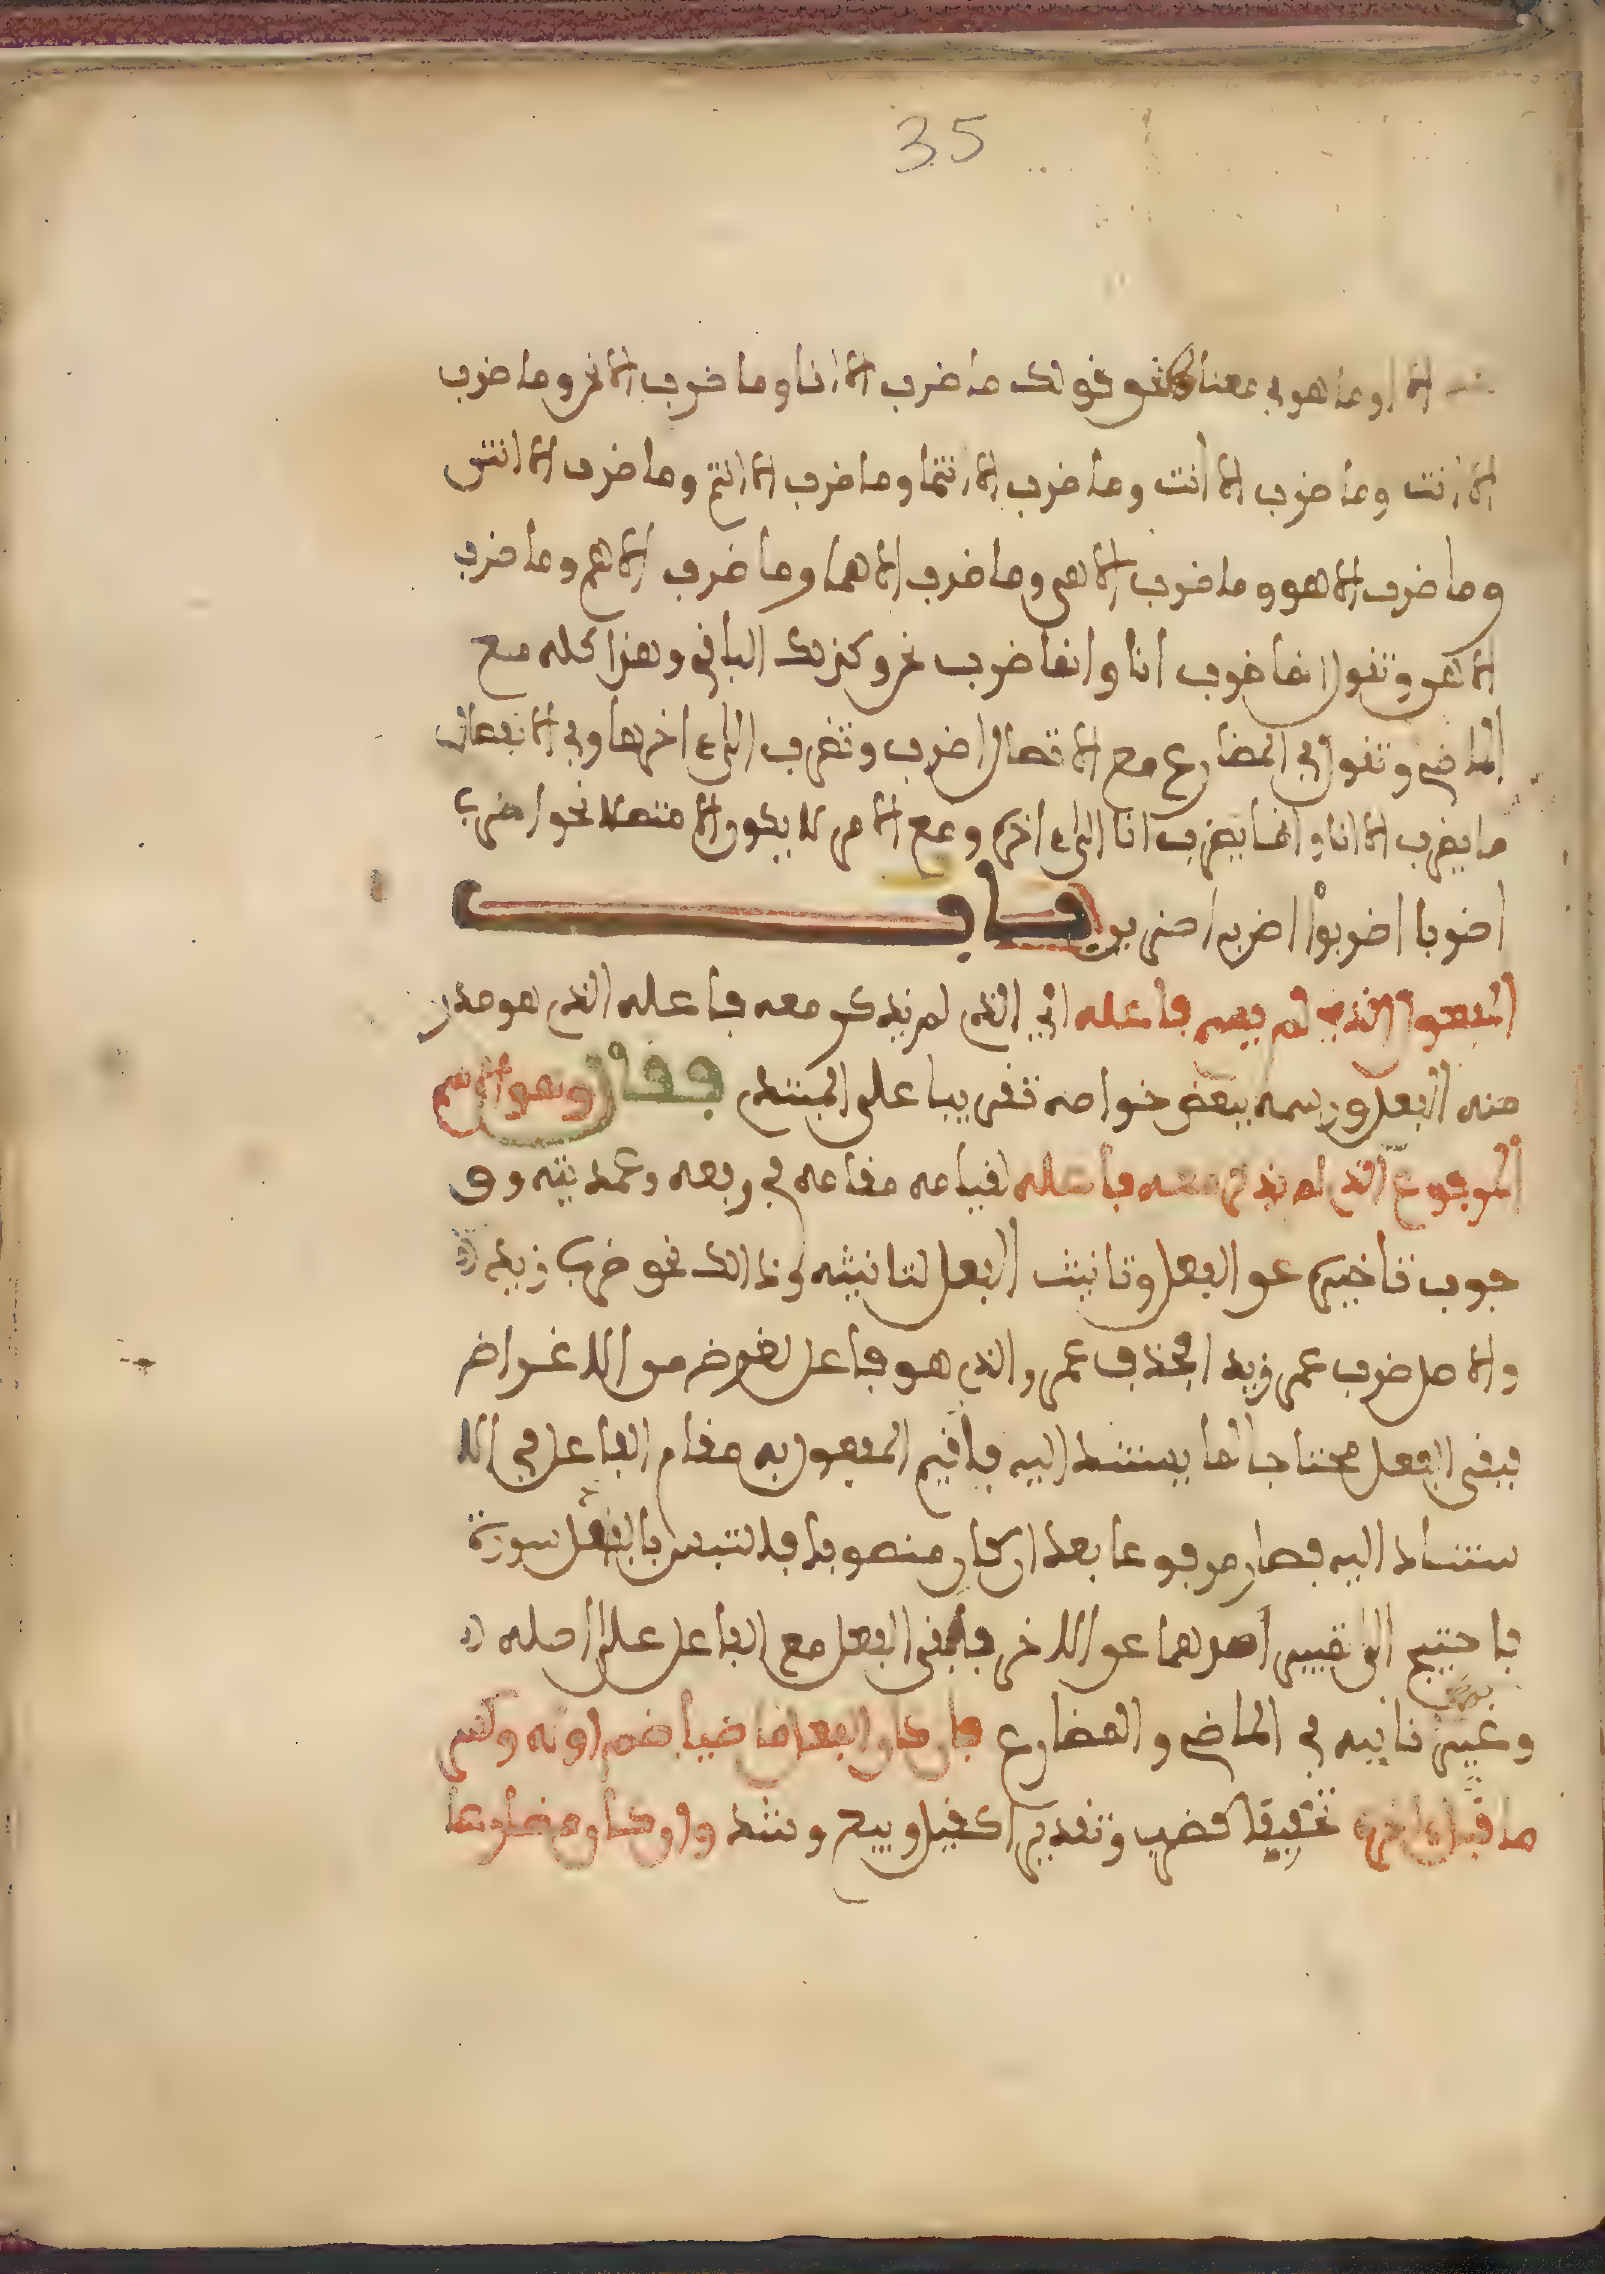 35
الا او ما هو في معناه نحو قولك ما ضرب الا انا وما ضرب الا نحن وما ضرب
الا انت وما ضرب الا انت وما ضرب الا انتما وما ضرب الا انتم وما ضرب الا انتن
وما ضرب الا هو وما ضرب الا هي وما ضرب الا هما وما ضرب الا هم وما ضرب
الا هن وتقول انما ضرب انا وانما ضرب نحن وكذلك الباقي وهذا كله مع
الماضي وتقول في المضارع مع الاتصال اضرب وتضرب الى اخرها وفي الانفصال
ما يضرب الا انا وانما يضرب انا الى اخره ومع الامر لا يكون الا متصلا نحو اضرب
اضربا اضربوا اضرب اضربن باب
المفعول الذي لم يسم فاعله اي الذي لم يذكر معه فاعله الذي هو مصدر
منه الفعل ورسمه ببعض خواصه تقريبا على المبتدي فقال وهو الاسم
المرفوع الذي لم يذكر معه فاعله لقيامه مقامه في رفعه وعمديته وو
جوب تاخيره عن الفعل وتانيث الفعل لتانيثه وذالك نحو ضرب زيد
والاصل ضرب عمرو زيدا فحذف عمرو الذي هو فاعل لغرض من الاغراض
فبقى الفعل محتاجا لما يستند اليه فاقيم المفعول به مقام الفاعل في الا
ستناد اليه فصار مرفوعا بعد ان كان منصوبا فالتبس بالفعل سورة
فاحتيج الى تمييز احدهما عن الاخر فابقى الفعل مع الفاعل على اصله
وغير نايبه في الماضي والمضارع فان كان الفعل ماضيا ضم اوله وكسر
ما قبل اخره تحقيقا كضرب وتقديرا كقيل وبيع وشد وان كان مضارعا